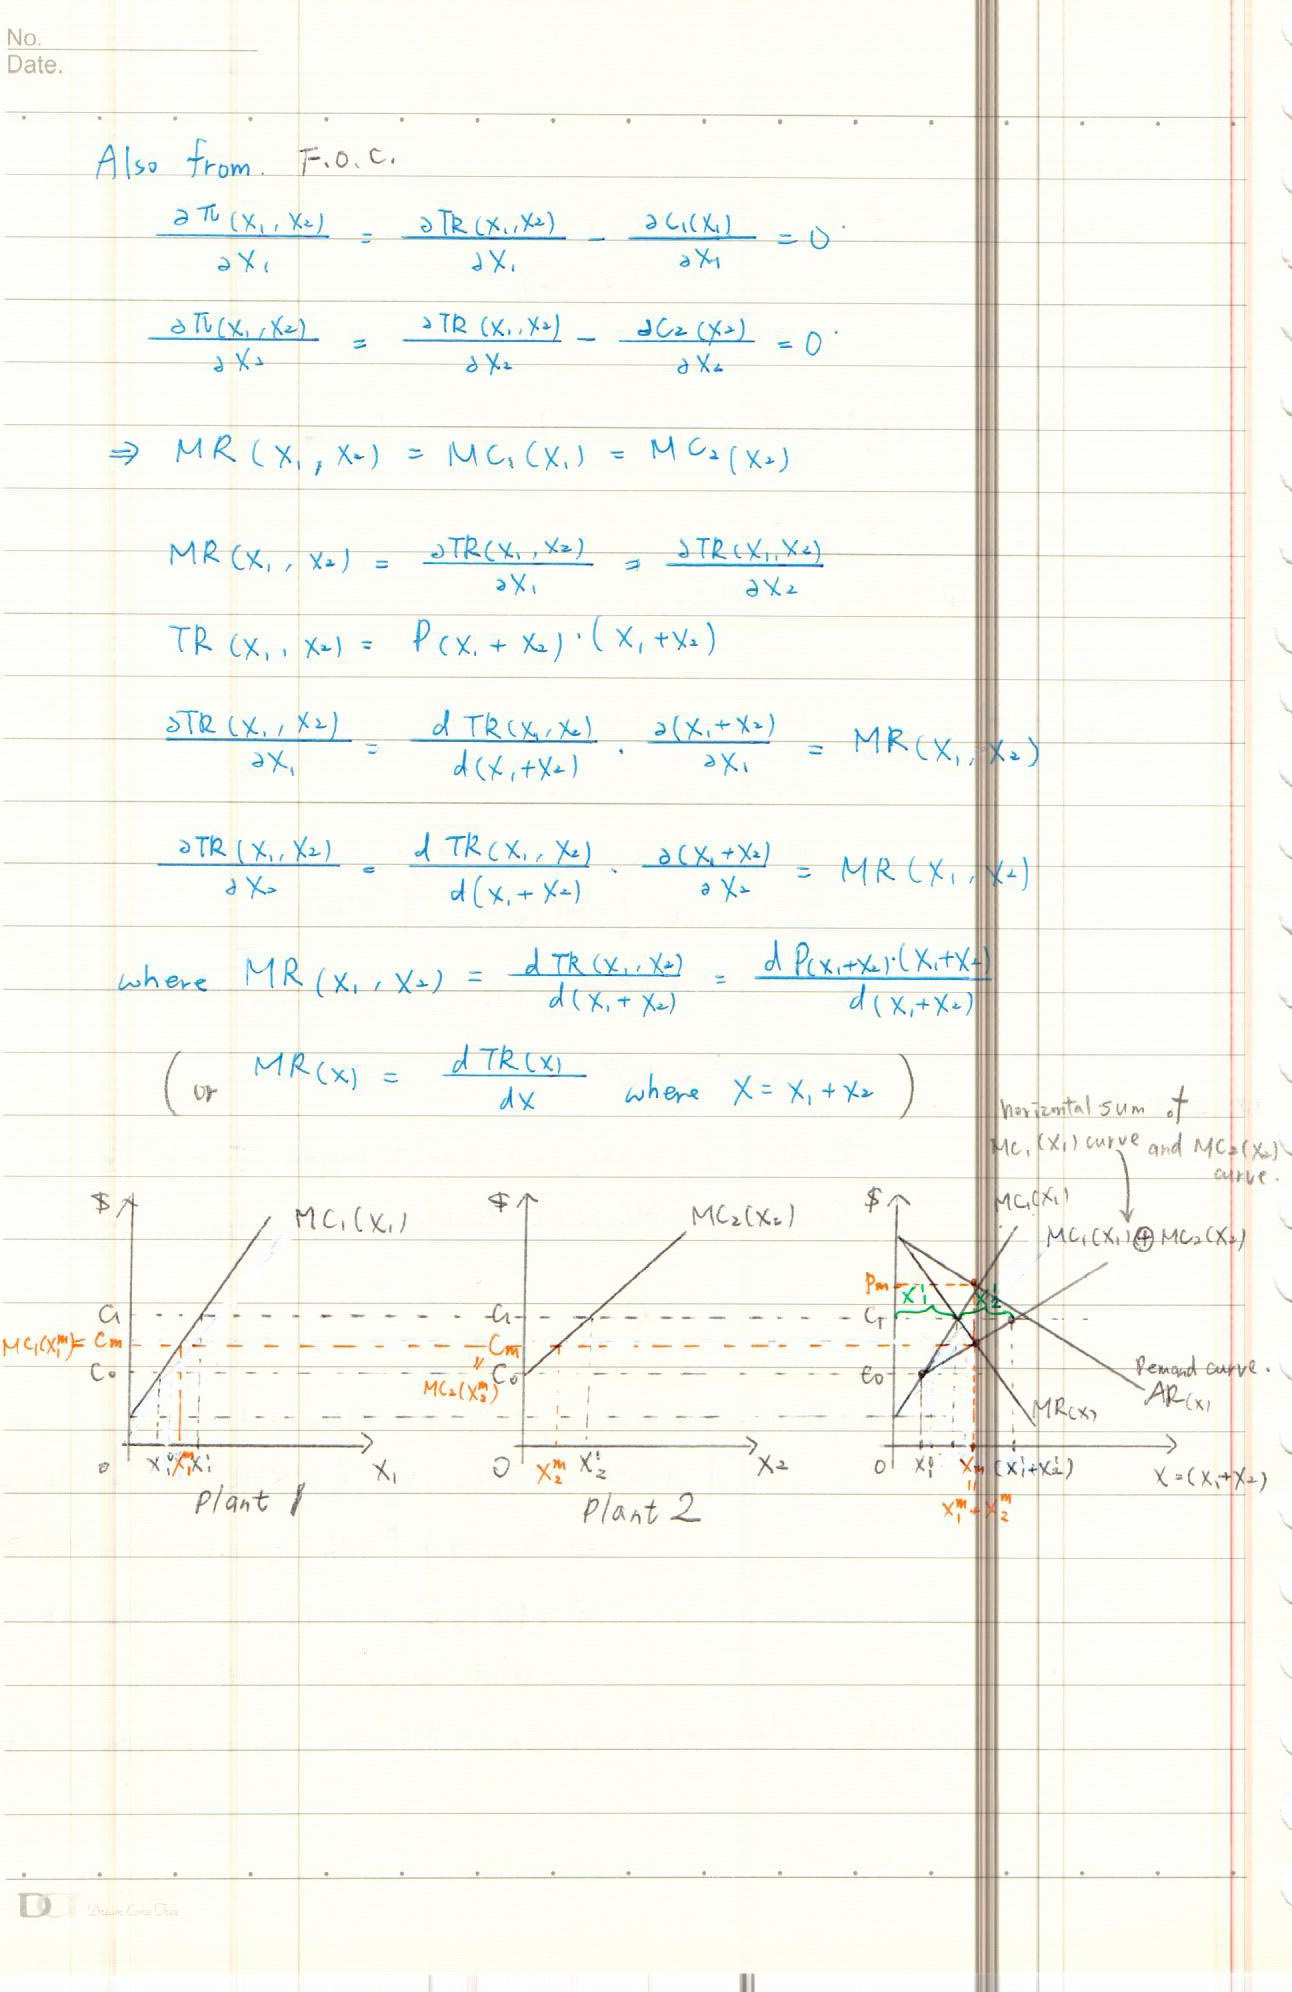 No.
Date.
Also from. F.O.C.
∂π(X₁, X₂)/∂X₁ = ∂TR(X₁, X₂)/∂X₁ − ∂C₁(X₁)/∂X₁ = 0
∂π(X₁, X₂)/∂X₂ = ∂TR(X₁, X₂)/∂X₂ − ∂C₂(X₂)/∂X₂ = 0
⇒ MR(X₁, X₂) = MC₁(X₁) = MC₂(X₂)
MR(X₁, X₂) = ∂TR(X₁, X₂)/∂X₁ = ∂TR(X₁, X₂)/∂X₂
TR(X₁, X₂) = P(X₁ + X₂)·(X₁ + X₂)
∂TR(X₁, X₂)/∂X₁ = d TR(X₁, X₂)/d(X₁+X₂) · ∂(X₁+X₂)/∂X₁ = MR(X₁, X₂)
∂TR(X₁, X₂)/∂X₂ = d TR(X₁, X₂)/d(X₁+X₂) · ∂(X₁+X₂)/∂X₂ = MR(X₁, X₂)
where MR(X₁, X₂) = d TR(X₁, X₂)/d(X₁+X₂) = d P(X₁+X₂)·(X₁+X₂)/d(X₁+X₂)
(or MR(X) = d TR(X)/dX where X = X₁ + X₂)
horizontal sum of
MC₁(X₁) curve and MC₂(X₂)
curve.
$ MC₁(X₁)
C₁
MC₁(X₁ᵐ) = Cm
C₀
0 X₁⁰ X₁ᵐ X₁¹ X₁
Plant 1
$ MC₂(X₂)
C₁
Cm
=
C₀
MC₂(X₂ᵐ)
0 X₂ᵐ X₂¹ X₂
Plant 2
$ MC₁(X₁)
MC₁(X₁)⊕MC₂(X₂)
Pm
X₁¹ X₂¹
C₁
C₀
Demand curve.
AR(X)
MR(X)
0 X₁⁰ Xm (X₁¹+X₂¹) X=(X₁+X₂)
=
X₁ᵐ + X₂ᵐ
Dream Come True